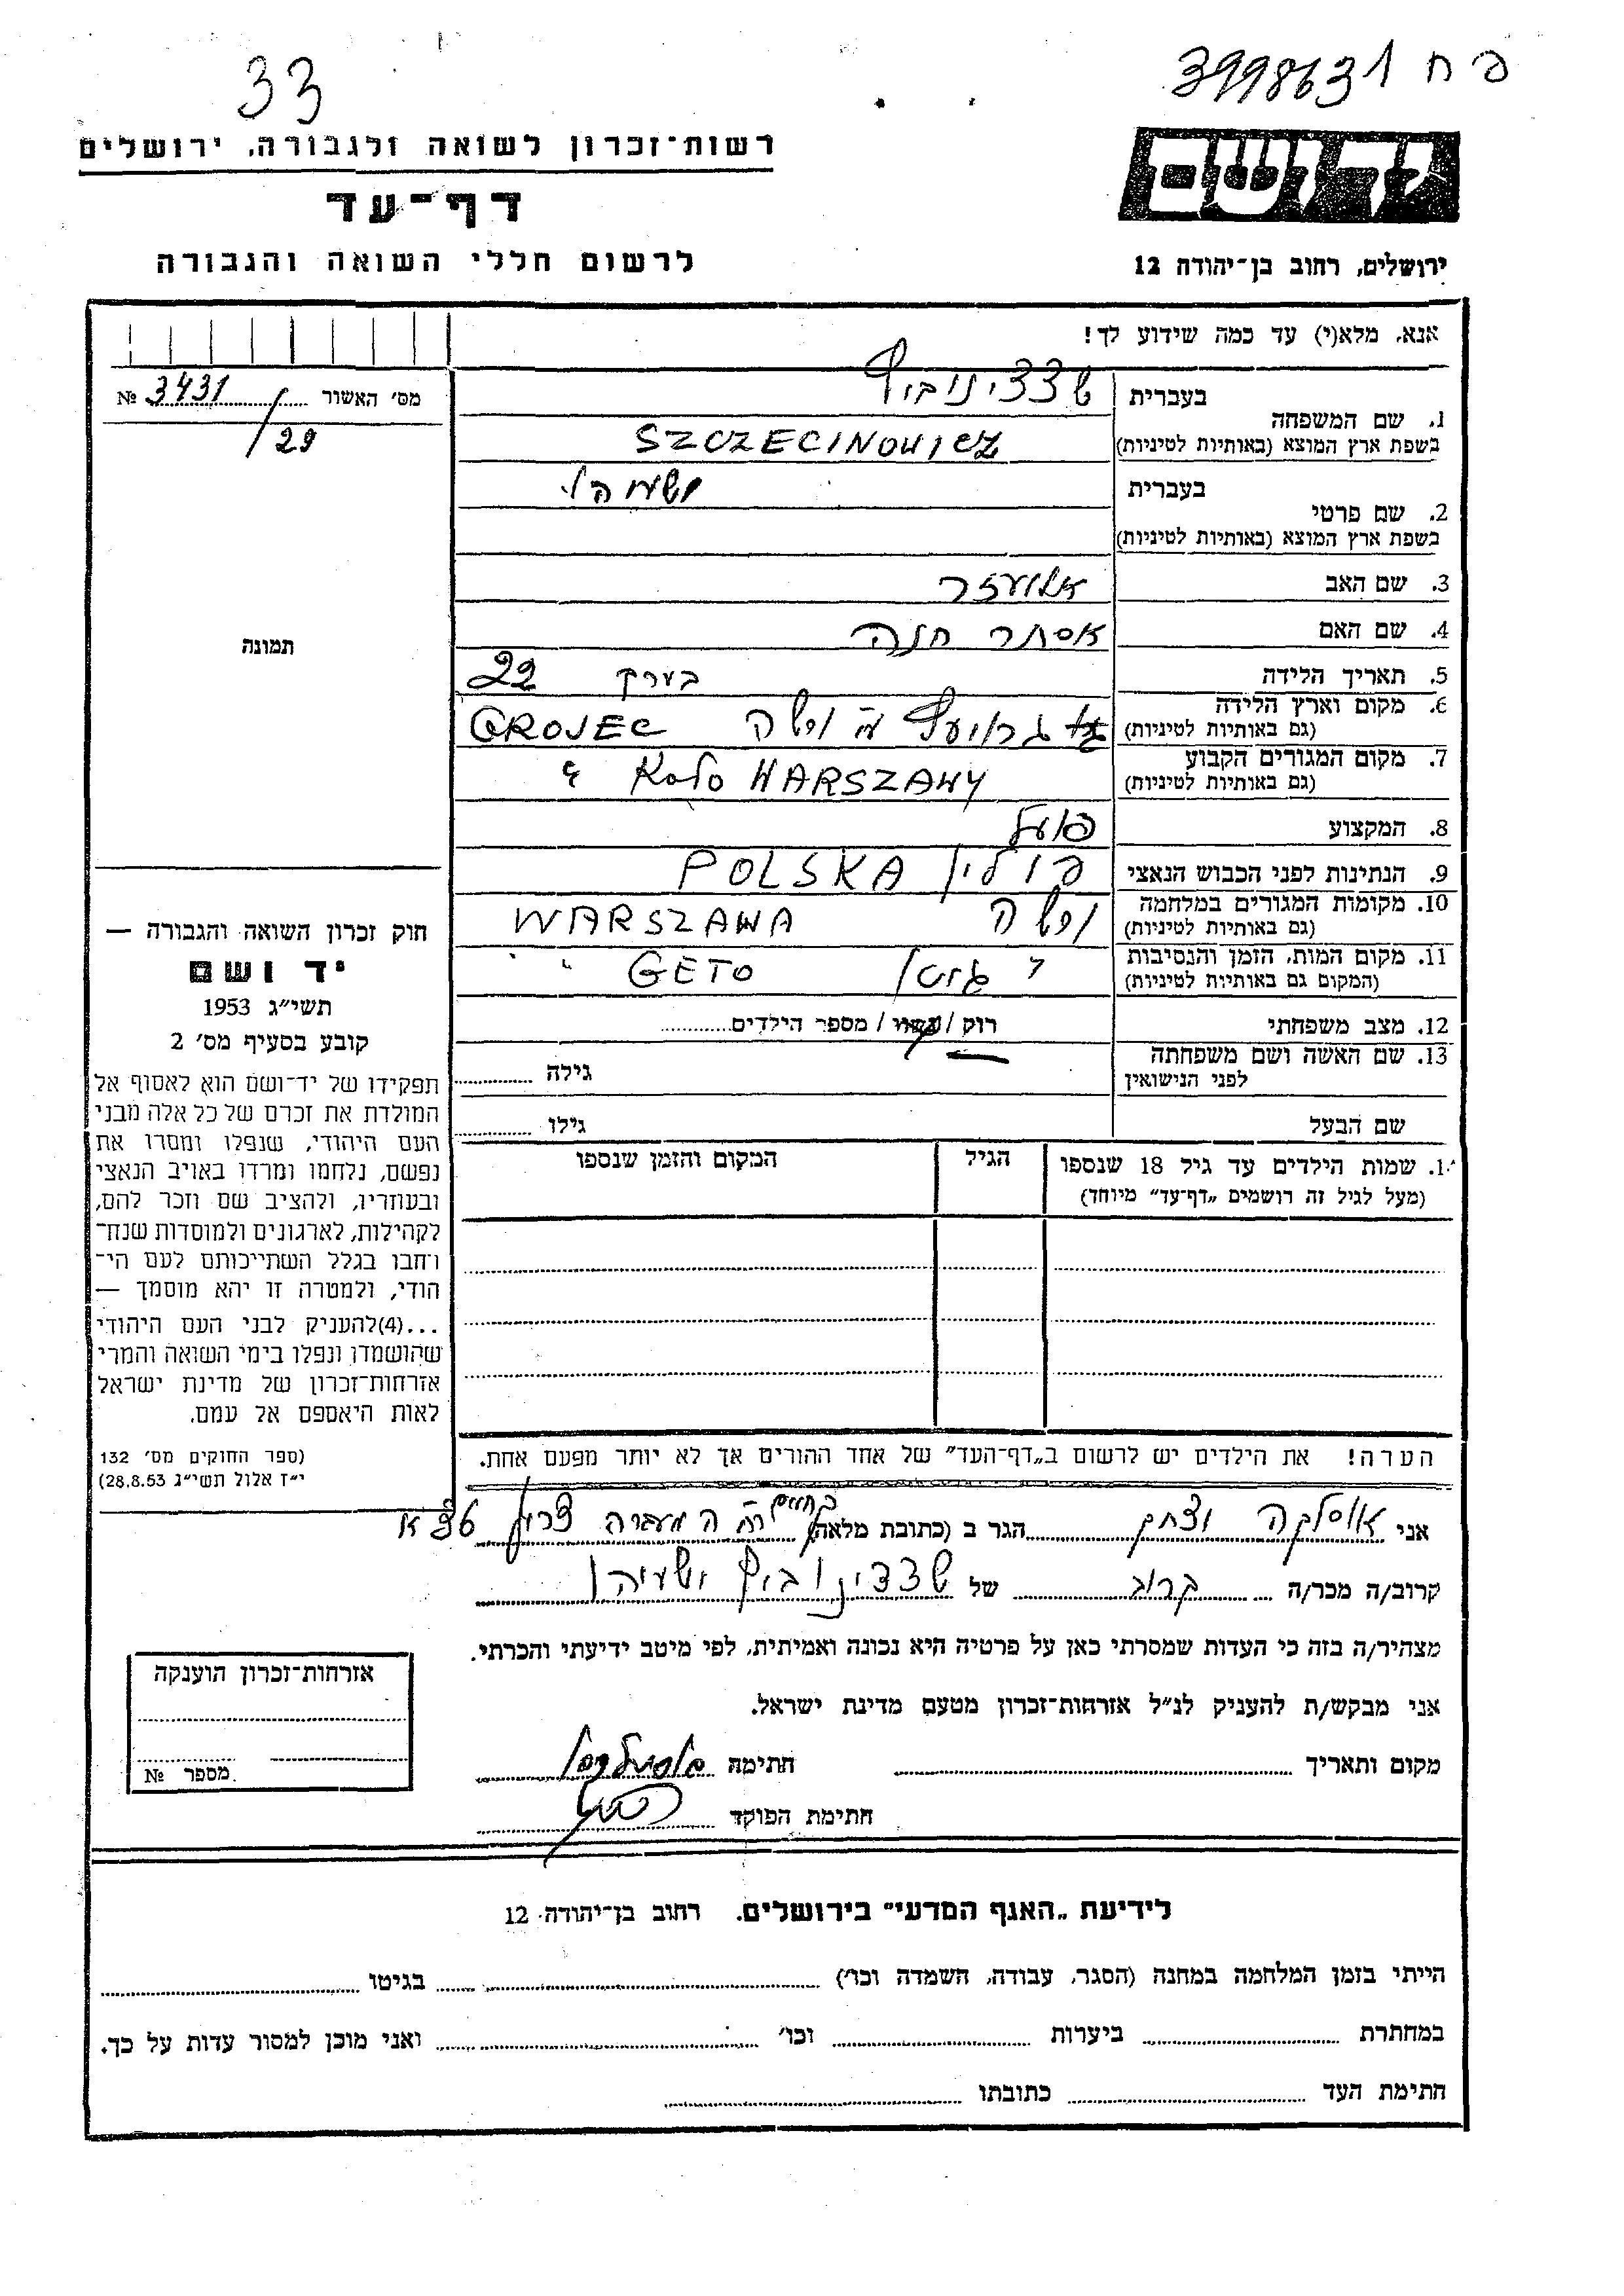 33
פ ח 3998631
רשות־זכרון לשואה ולגבורה, ירושלים
יד ושם
דף־עד
לרשום חללי השואה והגבורה
ירושלים, רחוב בן־יהודה 12
אנא, מלא(י) עד כמה שידוע לך!
מס׳ האשור 3431 №
/29
1. שם המשפחה
בעברית שצצינוביץ
בשפת ארץ המוצא (באותיות לטיניות) SZCZECINOWICZ
2. שם פרטי
בעברית ישעיהו
בשפת ארץ המוצא (באותיות לטיניות)
3. שם האב אלעזר
4. שם האם אסתר חנה
תמונה
5. תאריך הלידה בערך 22
6. מקום וארץ הלידה
(גם באותיות לטיניות) ורשה GROJEC
7. מקום המגורים הקבוע
(גם באותיות לטיניות) KOŁO WARSZAWY
8. המקצוע פועל
9. הנתינות לפני הכבוש הנאצי פולין POLSKA
10. מקומות המגורים במלחמה
(גם באותיות לטיניות) ורשה WARSZAWA
11. מקום המות, הזמן והנסיבות
(המקום גם באותיות לטיניות) גטו GETO " "
12. מצב משפחתי רוק / נשוי / מספר הילדים
13. שם האשה ושם משפחתה
לפני הנישואין גילה
שם הבעל גילו
1. שמות הילדים עד גיל 18 שנספו
(מעל לגיל זה רושמים „דף־עד״ מיוחד)
הגיל
המקום והזמן שנספו
חוק זכרון השואה והגבורה —
יד ושם
תשי״ג 1953
קובע בסעיף מס׳ 2
תפקידו של יד־ושם הוא לאסוף אל
המולדת את זכרם של כל אלה מבני
העם היהודי, שנפלו ומסרו את
נפשם, נלחמו ומרדו באויב הנאצי
ובעוזריו, ולהציב שם וזכר להם,
לקהילות, לארגונים ולמוסדות שנח־
רחבו בגלל השתייכותם לעם הי־
הודי, ולמטרה זו יהא מוסמך —
...(4)להעניק לבני העם היהודי
שהושמדו ונפלו בימי השואה והמרי
אזרחות־זכרון של מדינת ישראל
לאות היאספם אל עמם.
(ספר החוקים מס׳ 132
י״ז אלול תשי״ג 28.8.53)
הערה! את הילדים יש לרשום ב„דף־העד״ של אחד ההורים אך לא יותר מפעם אחת.
אני יצחק הגר ב (כתובת מלאה)
קרוב/ה מכר/ה קרוב של שצצינוביץ ישעיהו
מצהיר/ה בזה כי העדות שמסרתי כאן על פרטיה היא נכונה ואמיתית, לפי מיטב ידיעתי והכרתי.
אני מבקש/ת להעניק לנ״ל אזרחות־זכרון מטעם מדינת ישראל.
מקום ותאריך חתימה
חתימת הפוקד
אזרחות־זכרון הוענקה
מספר №
לידיעת „האגף המדעי״ בירושלים. רחוב בן־יהודה 12
הייתי בזמן המלחמה במחנה (הסגר, עבודה, השמדה וכו׳) בגיטו
במחתרת ביערות וכו׳ ואני מוכן למסור עדות על כך.
חתימת העד כתובתו